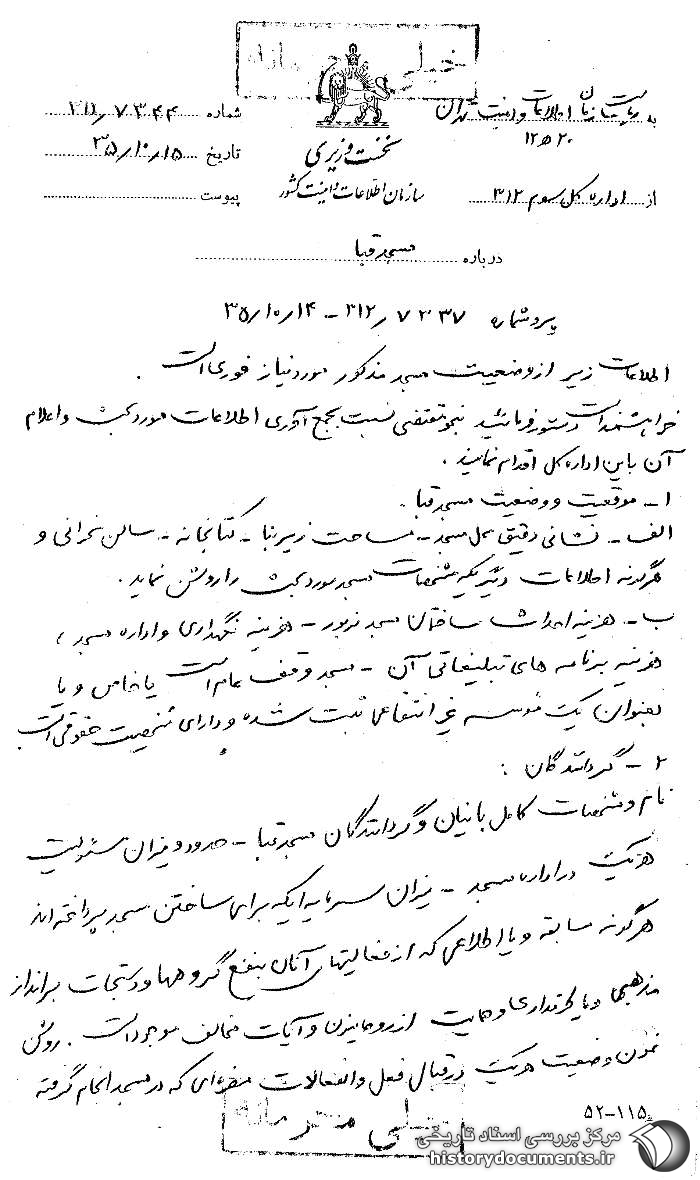 خیلی محرمانه
به ریاست سازمان اطلاعات و امنیت تهران
۲۰ ه ۱۲
شماره ۳۱۲/۷۳۴۴
تاریخ ۳۵/۱۰/۱۵
نخست وزیری
سازمان اطلاعات و امنیت کشور
پیوست
از اداره کل سوم ۳۱۲
درباره مسجد قبا
پیرو شماره ۷۳۳۷/۳۱۲ - ۳۵/۱۰/۱۴
اطلاعات زیر از وضعیت مسجد مذکور مورد نیاز فوری است .
خواهشمند است دستور فرمائید بنحو مقتضی نسبت بجمع آوری اطلاعات مورد بحث و اعلام
آن باین اداره کل اقدام نمایند .
۱- موقعیت و وضعیت مسجد قبا .
الف - نشانی دقیق محل مسجد - مساحت زیربنا - کتابخانه - سالن سخنرانی و
هرگونه اطلاعات دیگریکه مشخصات مسجد مورد بحث را روشن نماید .
ب - هزینه احداث ساختمان مسجد مزبور - هزینه نگهداری و اداره مسجد ،
هزینه برنامه های تبلیغاتی آن - مسجد وقف عام است یا خاص و یا
بعنوان یک موسسه غیر انتفاعی ثبت شده و دارای شخصیت حقوقی است
۲ - گردانندگان :
نام و مشخصات کامل بانیان و گردانندگان مسجد قبا - حدود و میزان مسئولیت
هر یک در اداره مسجد - میزان سرمایه ایکه برای ساختن مسجد پرداخته اند
هرگونه سابقه و یا اطلاعی که از فعالیتهای آنان بنفع گروهها و دستجات برانداز
مذهبی و یا طرفداری و حمایت از روحانیون و آیات مخالف موجود است . روشن
نمودن وضعیت هر یک در قبال فعل و انفعالات مضره ای که در مسجد انجام گرفته
۵۲-۱۱۵
خیلی محرمانه
مرکز بررسی اسناد تاریخی
historydocuments.ir